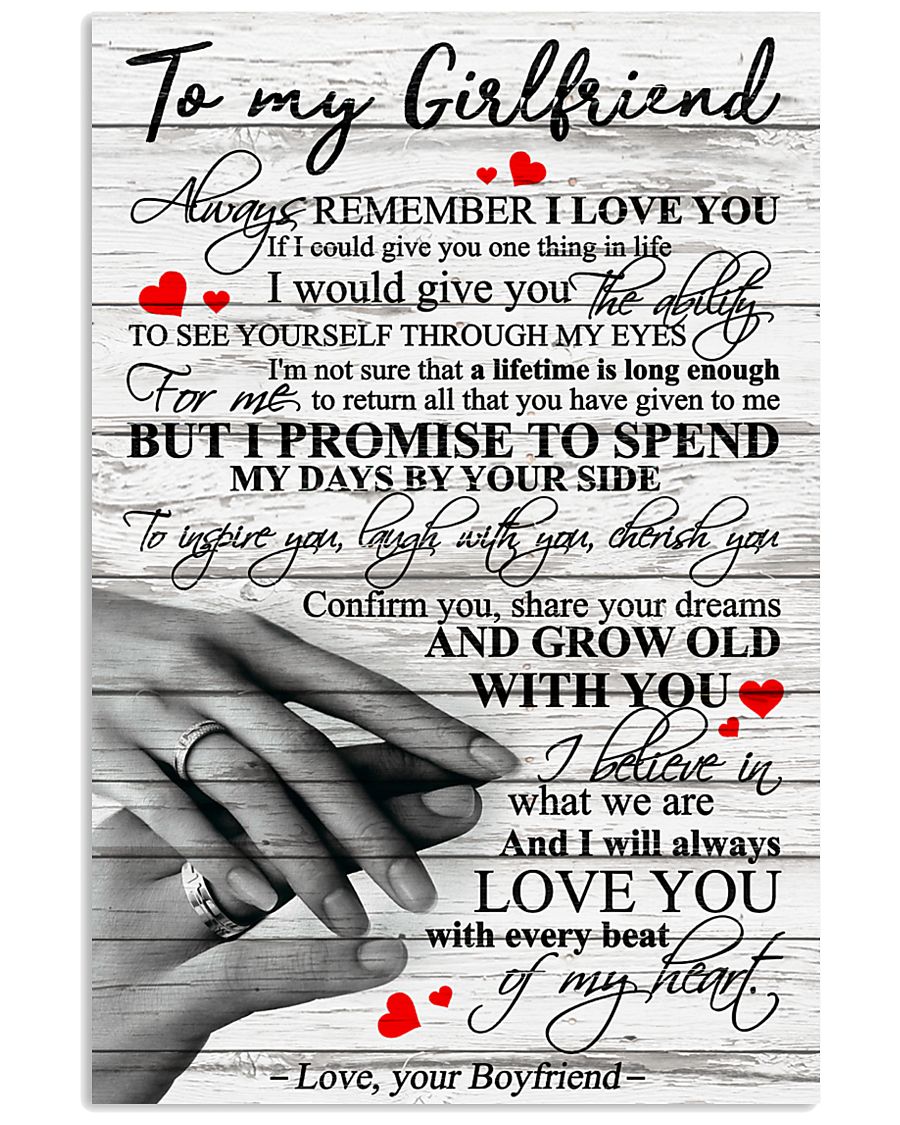 To my Girlfriend
Always REMEMBER I LOVE YOU
If I could give you one thing in life
I would give you The ability
TO SEE YOURSELF THROUGH MY EYES
I'm not sure that a lifetime is long enough
For me, to return all that you have given to me
BUT I PROMISE TO SPEND
MY DAYS BY YOUR SIDE
To inspire you, laugh with you, cherish you
Confirm you, share your dreams
AND GROW OLD
WITH YOU
I believe in
what we are
And I will always
LOVE YOU
with every beat
of my heart.
– Love, your Boyfriend –